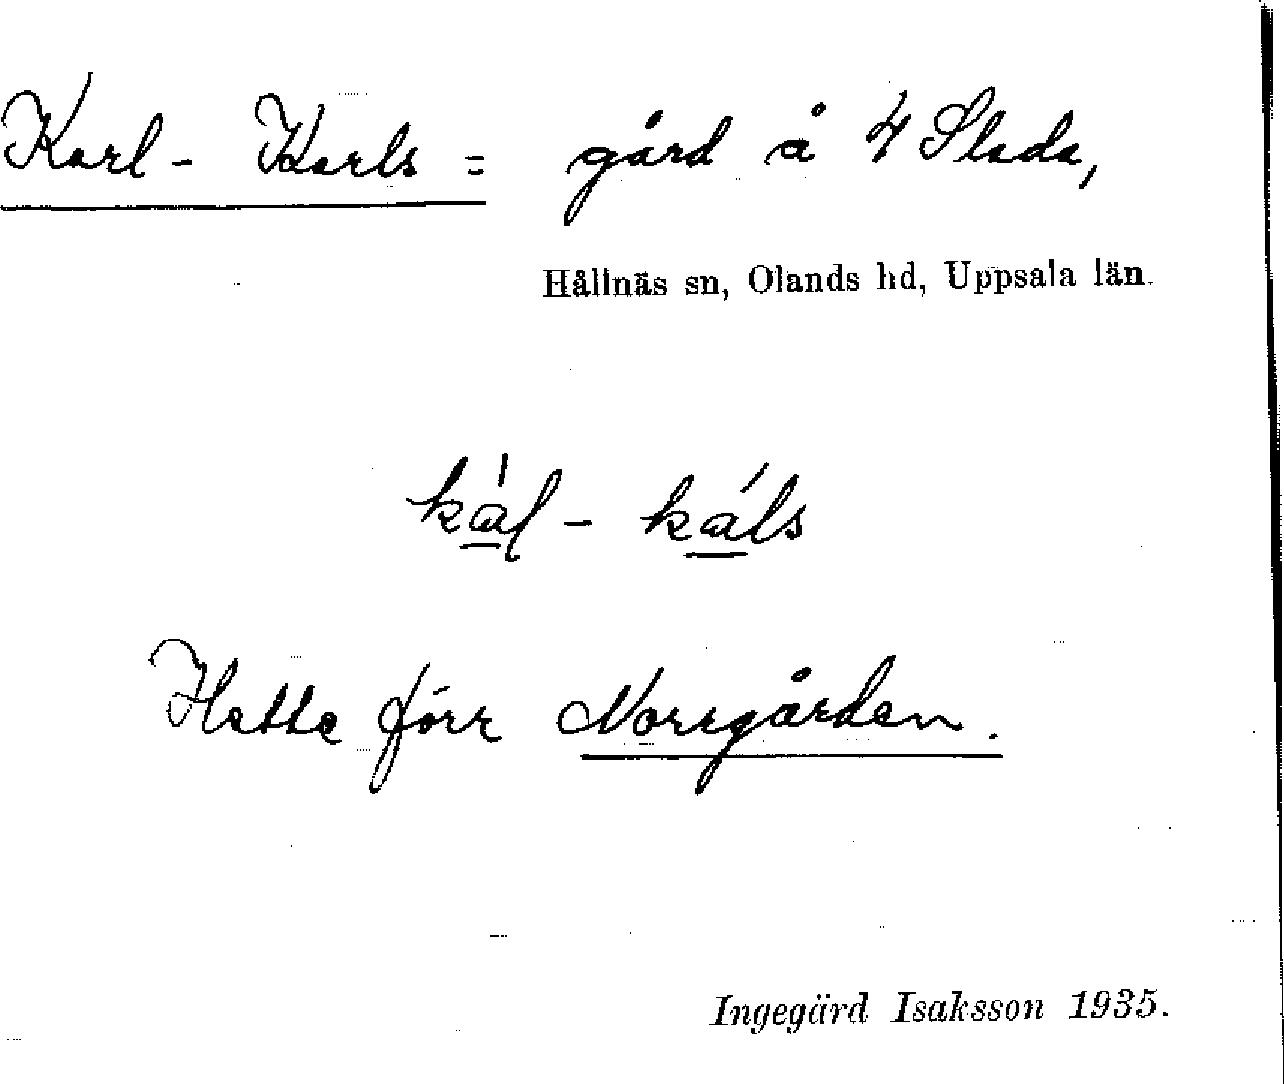 Karl-Karls= gård å 4 Slada,
Hållnäs sn, Olands hd, Uppsala län.
kàl-káls
Hette förr Norrgården.
Ingegärd Isaksson 1935.